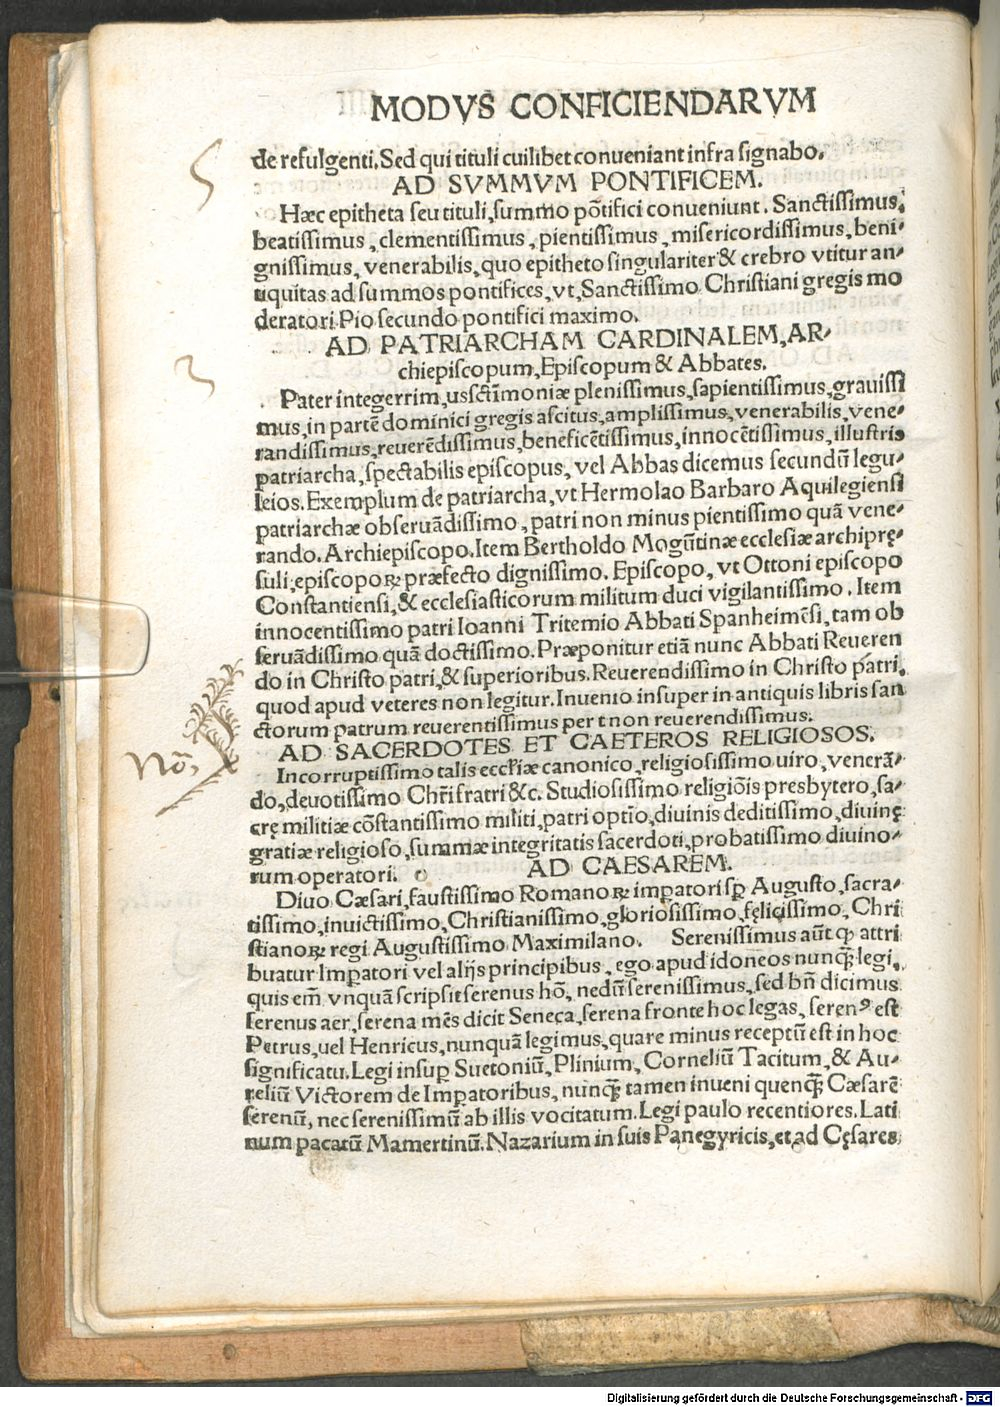 MODVS CONFICIENDARVM
de refulgenti. Sed qui tituli cuilibet conueniant infra signabo.
AD SVMMVM PONTIFICEM.
Hæc epitheta seu tituli, summo põtifici conueniunt. Sanctissimus,
beatissimus, clementissimus, pientissimus, misericordissimus, beni-
gnissimus, venerabilis, quo epitheto singulariter & crebro vtitur an-
tiquitas ad summos pontifices, vt, Sanctissimo Christiani gregis mo
deratori Pio secundo pontifici maximo.
AD PATRIARCHAM CARDINALEM, AR-
chiepiscopum, Episcopum & Abbates.
Pater integerrim, us sctĩmoniæ plenissimus, sapientissimus, grauissi
mus, in partẽ dominici gregis ascitus, amplissimus, venerabilis, vene-
randissimus, reuerẽdissimus, beneficẽtissimus, innocẽtissimus, illustris
patriarcha, spectabilis episcopus, vel Abbas dicemus secundũ legu-
leios. Exemplum de patriarcha, vt Hermolao Barbaro Aquilegiensi
patriarchæ obseruãdissimo, patri non minus pientissimo quã vene-
rando. Archiepiscopo. Item Bertholdo Mogũtinæ ecclesiæ archiprę-
suli, episcopoꝝ præfecto dignissimo. Episcopo, vt Ottoni episcopo
Constantiensi, & ecclesiasticorum militum duci vigilantissimo. Item
innocentissimo patri Ioanni Tritemio Abbati Spanheimẽsi, tam ob
seruãdissimo quã doctissimo. Præponitur etiã nunc Abbati Reueren
do in Christo patri, & superioribus. Reuerendissimo in Christo patri.
quod apud veteres non legitur. Inuenio insuper in antiquis libris san
ctorum patrum reuerentissimus per t non reuerendissimus.
Nõ,
AD SACERDOTES ET CAETEROS RELIGIOSOS.
Incorruptissimo talis eccľiæ canonico, religiosissimo uiro, venerã-
do, deuotissimo Chr̃i fratri &c. Studiosissimo religiõis presbytero, sa-
crę militiæ cõstantissimo militi, patri optĩo, diuinis deditissimo, diuinę
gratiæ religioso, summæ integritatis sacerdoti, probatissimo diuino-
rum operatori. AD CAESAREM.
Diuo Cæsari, faustissimo Romanoꝝ imꝑatori sꝑ Augusto, sacra-
tissimo, inuictissimo, Christianissimo, gloriosissimo, fęlicissimo, Chri
stianoꝝ regi Augustissimo Maximilano. Serenissimus aũt ꝙ attri
buatur Imꝑatori vel alijs principibus, ego apud idoneos nunꝗ̃ legi,
quis em̃ vnquã scripsit serenus hõ, nedũ serenissimus, sed bñ dicimus
serenus aer, serena mẽs dicit Seneca, serena fronte hoc legas, serenꝰ est
Petrus, uel Henricus, nunquã legimus, quare minus receptũ est in hoc
significatu. Legi insuꝑ Suetoniũ, Plinium, Corneliũ Tacitum, & Au-
reliũ Victorem de Imꝑatoribus, nunꝗ̃ tamen inueni quenꝗ̃ Cæsarẽ
serenũ, nec serenissimũ ab illis vocitatum. Legi paulo recentiores. Lati
num pacatũ Mamertinũ. Nazarium in suis Panegyricis, et ad Cęsares
Digitalisierung gefördert durch die Deutsche Forschungsgemeinschaft - DFG